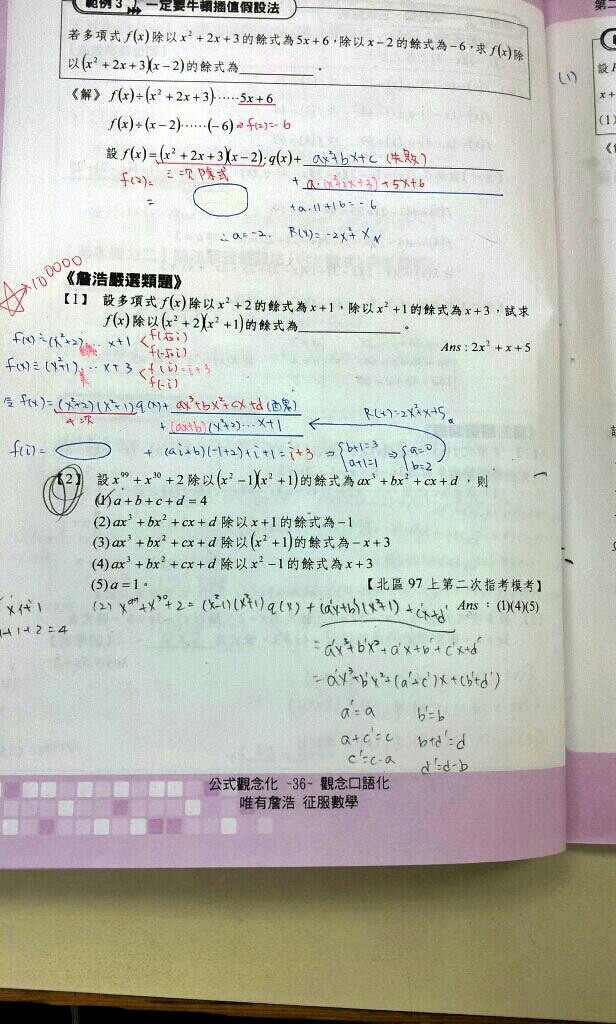 範例 3 一定要牛頓插值假設法
若多項式 f(x) 除以 x² + 2x + 3 的餘式為 5x + 6，除以 x − 2 的餘式為 −6，求 f(x) 除
以 (x² + 2x + 3)(x − 2) 的餘式為____________。
《解》 f(x) ÷ (x² + 2x + 3)⋯⋯5x + 6
f(x) ÷ (x − 2)⋯⋯(−6) ⇒ f(2)=-6
設 f(x) = (x² + 2x + 3)(x − 2)·q(x) + ax²+bx+c (失敗)
三次除式
+ a·(x²+2x+3)+5x+6
f(2)=
= +a·11+16=-6
∴a=-2. R(x)=-2x²+x
100000
《詹浩嚴選類題》
【1】 設多項式 f(x) 除以 x² + 2 的餘式為 x + 1，除以 x² + 1 的餘式為 x + 3，試求
f(x) 除以 (x² + 2)(x² + 1) 的餘式為____________。
Ans : 2x² + x + 5
f(x)÷(x²+2)⋯x+1 < f(√2i) f(-√2i)
f(x)÷(x²+1)⋯x+3 < f(i)=i+3 f(-i)
令 f(x)=(x²+2)(x²+1)q(x)+ax³+bx²+cx+d
4次
+(ax+b)(x²+2)⋯x+1
R(x)=2x²+x+5
f(i)= +(ai+b)(-1+2)+i+1=i+3 ⇒ {b+1=3 a+1=1 ⇒ {a=0 b=2
【2】 設 x⁹⁹ + x³⁰ + 2 除以 (x² − 1)(x² + 1) 的餘式為 ax³ + bx² + cx + d ，則
(1) a + b + c + d = 4
(2) ax³ + bx² + cx + d 除以 x + 1 的餘式為 −1
(3) ax³ + bx² + cx + d 除以 (x² + 1) 的餘式為 −x + 3
(4) ax³ + bx² + cx + d 除以 x² − 1 的餘式為 x + 3
(5) a = 1。
【北區 97 上第二次指考模考】
Ans : (1)(4)(5)
1+1+2=4
(2) x⁹⁹+x³⁰+2=(x²-1)(x²+1)q(x)+(a'x+b')(x²+1)+c'x+d'
=a'x³+b'x²+a'x+b'+c'x+d'
=a'x³+b'x²+(a'+c')x+(b'+d')
a'=a b'=b
a+c'=c b+d'=d
c'=c-a d'=d-b
公式觀念化 ~36~ 觀念口語化
唯有詹浩 征服數學
第二
(1)
設
(1)